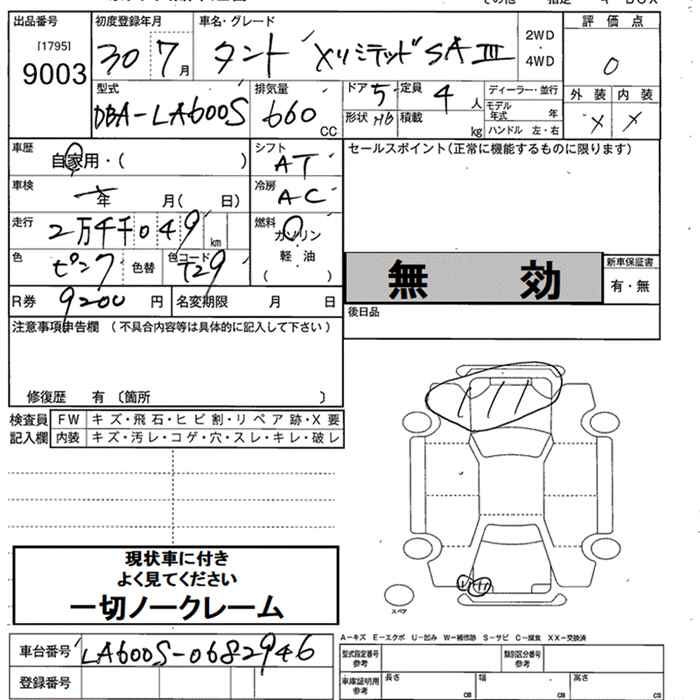 出品番号 初度登録年月 車名・グレード 評価点
[1795]
9003
30 7月 タント XリミテッドSAⅢ 2WD・4WD 0
型式 排気量 ドア 定員 ディーラー・並行 外装 内装
DBA-LA600S 660CC 5 4人 モデル年式 年 X X
形状 HB 積載 kg ハンドル 左・右
車歴 自家用・( ) シフト AT セールスポイント(正常に機能するものに限ります)
車検 年 月( 日) 冷房 AC
走行 2万4千049km 燃料 ガソリン
軽・油
( )
色 ピンク 色替 色コード T29
無効 新車保証書
有・無
R券 9200円 名変期限 月 日
後日品
注意事項申告欄 (不具合内容等は具体的に記入して下さい)
修復歴 有〔箇所 〕
検査員記入欄 FW キズ・飛石・ヒビ割・リペア跡・X要
内装 キズ・汚レ・コゲ・穴・スレ・キレ・破レ
現状車に付き
よく見てください
一切ノークレーム
スペア
A-キズ E-エクボ U-凹み W-補修跡 S-サビ C-腐食 XX-交換済
車台番号 LA600S-0682946
型式指定番号参考 類別区分番号参考
登録番号
車庫証明用参考 長さ cm 幅 cm 高さ cm